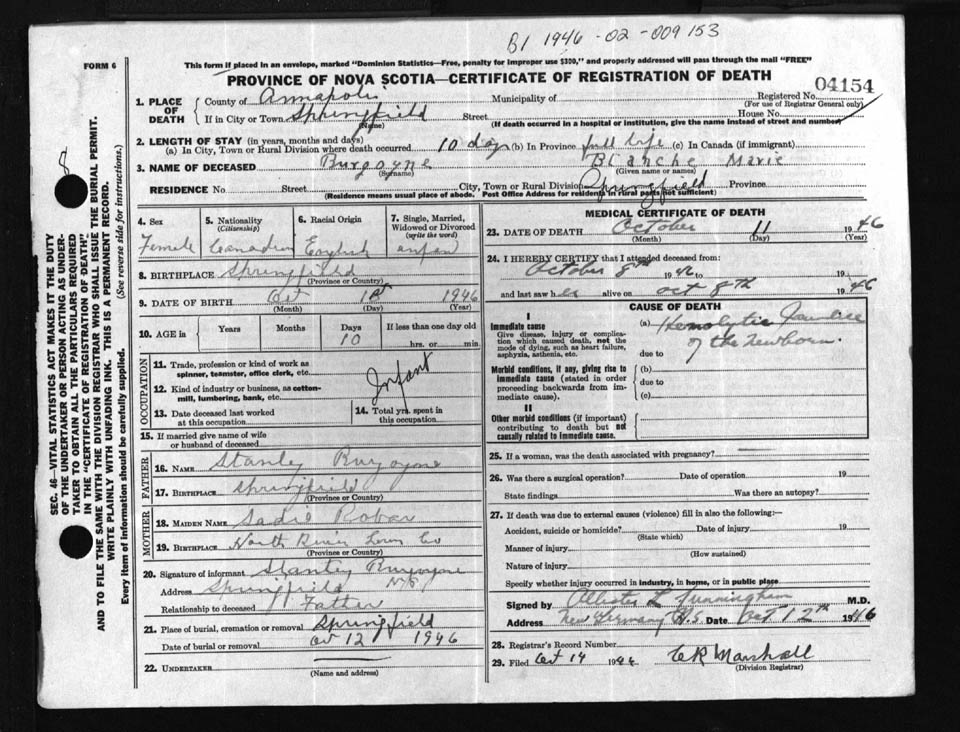 B1 1946-02-009153
FORM 6
This form if placed in an envelope, marked "Dominion Statistics—Free, penalty for improper use $300," and properly addressed will pass through the mail "FREE"
PROVINCE OF NOVA SCOTIA—CERTIFICATE OF REGISTRATION OF DEATH
04154
1. PLACE OF DEATH
County of Annapolis Municipality of Registered No.
(For use of Registrar General only)
If in City or Town Springfield Street House No.
(Name) (If death occurred in a hospital or institution, give the name instead of street and number)
2. LENGTH OF STAY (in years, months and days)
(a) In City, Town or Rural Division where death occurred 10 days (b) In Province full life (c) In Canada (if immigrant)
3. NAME OF DECEASED Burgoyne Blanche Marie
(Surname) (Given name or names)
RESIDENCE No. Street City, Town or Rural Division Springfield Province
(Residence means usual place of abode. Post Office Address for residents in rural parts not sufficient)
4. Sex
Female
5. Nationality
(Citizenship)
Canadian
6. Racial Origin
English
7. Single, Married, Widowed or Divorced
(write the word)
8. BIRTHPLACE Springfield
(Province or Country)
9. DATE OF BIRTH Oct 1st 1946
(Month) (Day) (Year)
10. AGE in Years Months Days If less than one day old
10 hrs. or min.
OCCUPATION
11. Trade, profession or kind of work as spinner, teamster, office clerk, etc.
12. Kind of industry or business, as cotton-mill, lumbering, bank, etc.
Infant
13. Date deceased last worked at this occupation
14. Total yrs. spent in this occupation
15. If married give name of wife or husband of deceased
FATHER
16. NAME Stanley Burgoyne
17. BIRTHPLACE Springfield
(Province or Country)
MOTHER
18. MAIDEN NAME Sadie Robar
19. BIRTHPLACE North River Lun. Co
(Province or Country)
20. Signature of informant Stanley Burgoyne
Address Springfield N.S.
Relationship to deceased Father
21. Place of burial, cremation or removal Springfield
Date of burial or removal Oct 12 1946
22. UNDERTAKER
(Name and address)
MEDICAL CERTIFICATE OF DEATH
23. DATE OF DEATH October 11 1946
(Month) (Day) (Year)
24. I HEREBY CERTIFY that I attended deceased from:
October 8th 1946 to 19
and last saw her alive on Oct 8th 1946
CAUSE OF DEATH
I
Immediate cause
Give disease, injury or complication which caused death, not the mode of dying, such as heart failure, asphyxia, asthenia, etc.
(a) Hemolytic Jaundice
of the newborn.
due to
Morbid conditions, if any, giving rise to immediate cause (stated in order proceeding backwards from immediate cause).
(b)
due to
(c)
II
Other morbid conditions (if important) contributing to death but not causally related to immediate cause.
25. If a woman, was the death associated with pregnancy?
26. Was there a surgical operation? Date of operation 19
State findings Was there an autopsy?
27. If death was due to external causes (violence) fill in also the following:—
Accident, suicide or homicide? Date of injury 19
(State which)
Manner of injury
(How sustained)
Nature of injury
Specify whether injury occurred in industry, in home, or in public place
Signed by Allister L Cunningham M.D.
Address New Germany N.S. Date Oct 12th 1946
28. Registrar's Record Number
29. Filed Oct 14 1946 CR Marshall
(Division Registrar)
SEC. 46—VITAL STATISTICS ACT MAKES IT THE DUTY
OF THE UNDERTAKER OR PERSON ACTING AS UNDER-
TAKER TO OBTAIN ALL THE PARTICULARS REQUIRED
IN THE "CERTIFICATE OF REGISTRATION OF DEATH"
AND TO FILE THE SAME WITH THE DIVISION REGISTRAR WHO SHALL ISSUE THE BURIAL PERMIT.
WRITE PLAINLY WITH UNFADING INK. THIS IS A PERMANENT RECORD.
Every item of information should be carefully supplied. (See reverse side for instructions.)